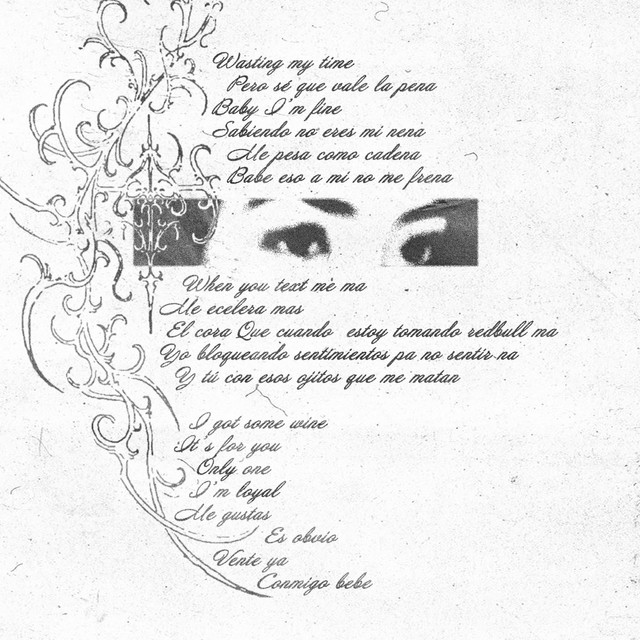 Wasting my time
Pero sé que vale la pena
Baby I'm fine
Sabiendo no eres mi nena
Me pesa como cadena
Babe eso a mi no me frena
When you text me ma
Me ecelera mas
El cora Que cuando estoy tomando redbull ma
Yo bloqueando sentimientos pa no sentir na
Y tú con esos ojitos que me matan
I got some wine
It's for you
Only one
I'm loyal
Me gustas
Es obvio
Vente ya
Conmigo bebe